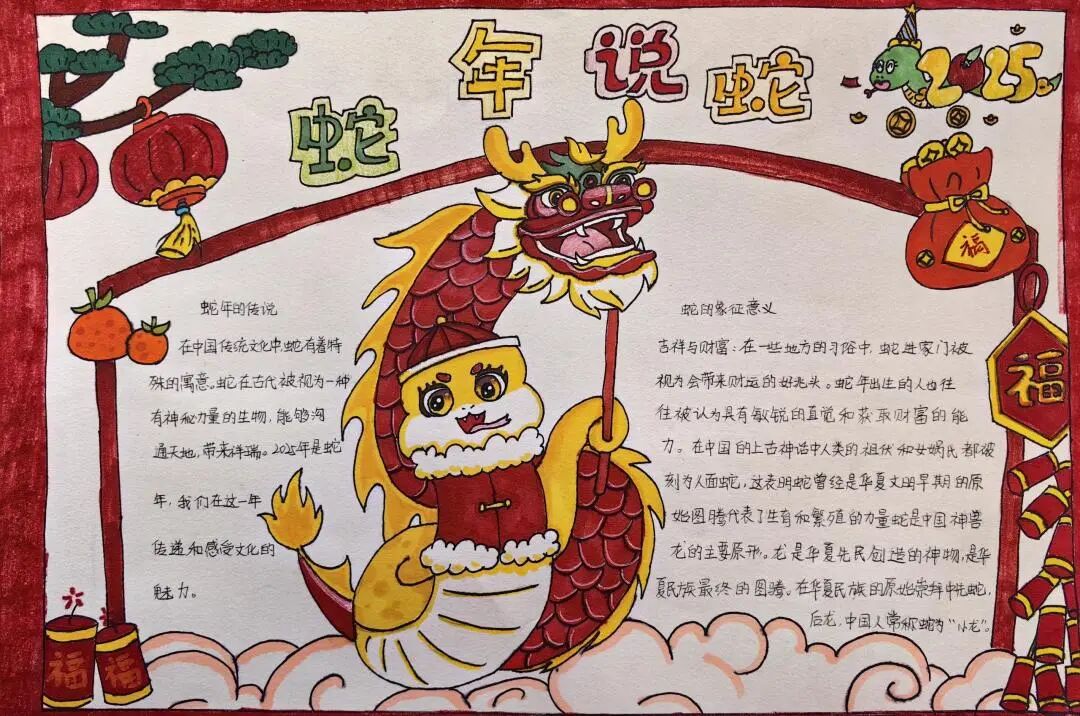 蛇年说蛇
2025
福
福
福
福
蛇年的传说
在中国传统文化中,蛇有着特
殊的寓意。蛇在古代被视为一种
有神秘力量的生物,能够沟
通天地,带来祥瑞。2025年是蛇
年,我们在这一年
传递和感受文化的
魅力。
蛇的象征意义
吉祥与财富:在一些地方的习俗中,蛇进家门被
视为会带来财运的好兆头。蛇年出生的人也往
往被认为具有敏锐的直觉和获取财富的能
力。在中国的上古神话中人类的祖伏和女娲氏都被
刻为人面蛇,这表明蛇曾经是华夏文明早期的原
始图腾代表了生育和繁殖的力量蛇是中国神兽
龙的主要原形。龙是华夏先民创造的神物,是华
夏民族最终的图腾。在华夏民族的原始崇拜中先蛇,
后龙,中国人常称蛇为“小龙”。